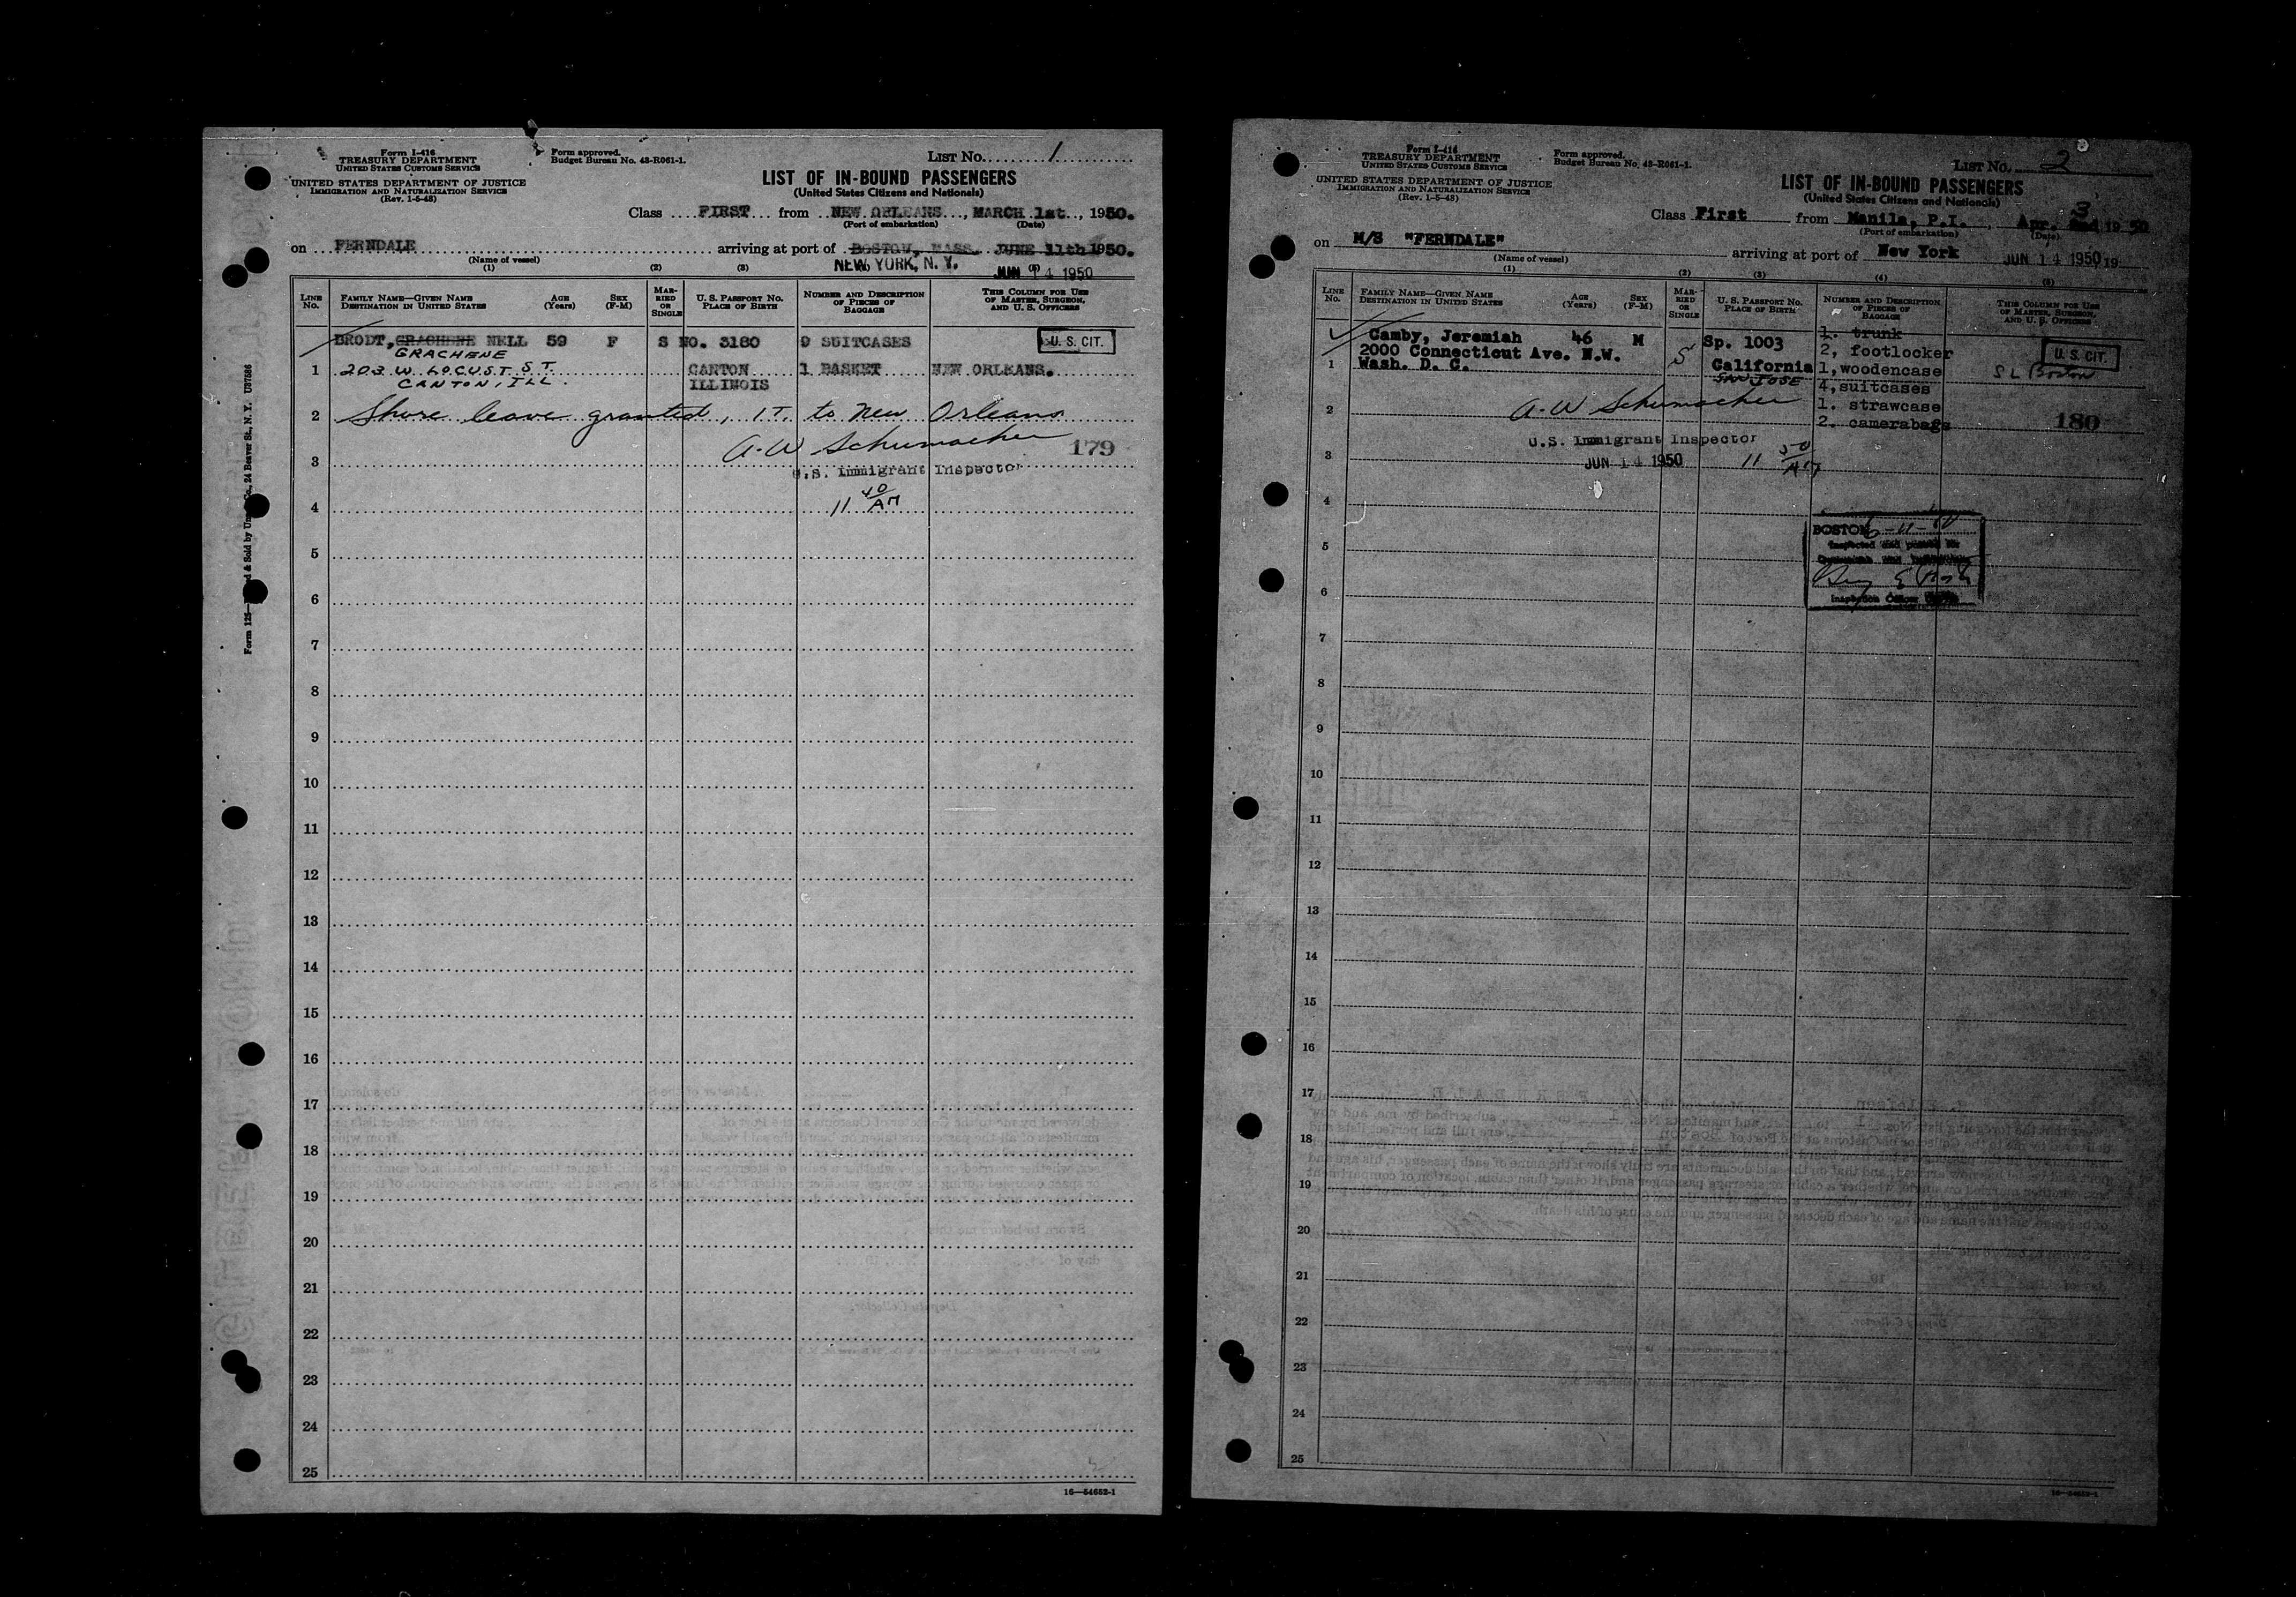 Form I-416
TREASURY DEPARTMENT
UNITED STATES CUSTOMS SERVICE
UNITED STATES DEPARTMENT OF JUSTICE
IMMIGRATION AND NATURALIZATION SERVICE
(Rev. 1-5-48)
Form approved.
Budget Bureau No. 43-R061-1.
LIST No. 1
LIST OF IN-BOUND PASSENGERS
(United States Citizens and Nationals)
Class FIRST from NEW ORLEANS, MARCH 1st, 1950.
(Port of embarkation) (Date)
on FERNDALE arriving at port of BOSTON, MASS. JUNE 11th 1950.
(Name of vessel)
NEW YORK, N. Y. JUN 14 1950
(1) (2) (3)
LINE No. FAMILY NAME—GIVEN NAME DESTINATION IN UNITED STATES AGE (Years) SEX (F-M) MARRIED OR SINGLE U. S. PASSPORT No. PLACE OF BIRTH NUMBER AND DESCRIPTION OF PIECES OF BAGGAGE THIS COLUMN FOR USE OF MASTER, SURGEON, AND U. S. OFFICERS
BRODT, GRACHENE NELL 59 F S NO. 3180 9 SUITCASES U. S. CIT.
GRACHENE
1 203 W. LOCUST ST. CANTON 1 BASKET NEW ORLEANS.
CANTON, ILL. ILLINOIS
2 Shore leave granted, I.T. to New Orleans
A. W Schumacher 179
3 U.S. Immigrant Inspector
4 11 40 AM
5
6
7
8
9
10
11
12
13
14
15
16
17
18
19
20
21
22
23
24
25
16—54652-1
Form I-416
TREASURY DEPARTMENT
UNITED STATES CUSTOMS SERVICE
UNITED STATES DEPARTMENT OF JUSTICE
IMMIGRATION AND NATURALIZATION SERVICE
(Rev. 1-5-48)
Form approved.
Budget Bureau No. 43-R061-1.
LIST No. 2
LIST OF IN-BOUND PASSENGERS
(United States Citizens and Nationals)
Class First from Manila, P.I., Apr. 3 2nd 1950
(Port of embarkation) (Date)
on M/S "FERNDALE" arriving at port of New York JUN 14 1950 19
(Name of vessel)
(1) (2) (3) (4) (5)
LINE No. FAMILY NAME—GIVEN NAME DESTINATION IN UNITED STATES AGE (Years) SEX (F-M) MARRIED OR SINGLE U. S. PASSPORT No. PLACE OF BIRTH NUMBER AND DESCRIPTION OF PIECES OF BAGGAGE THIS COLUMN FOR USE OF MASTER, SURGEON, AND U. S. OFFICERS
Camby, Jeremiah 46 M S Sp. 1003 1. trunk
2000 Connecticut Ave. N.W. 2, footlocker U. S. CIT.
1 Wash. D. C. California 1, woodencase S L Boston
SAN JOSE 4, suitcases
2 A. W Schumacher 1. strawcase
2. camerabags 180
U.S. Immigrant Inspector
3 JUN 14 1950 11 50 AM
4
BOSTON 6-11-50
5 Inspected and passed
6
Inspection Officer
7
8
9
10
11
12
13
14
15
16
17
18
19
20
21
22
23
24
25
16—54652-1